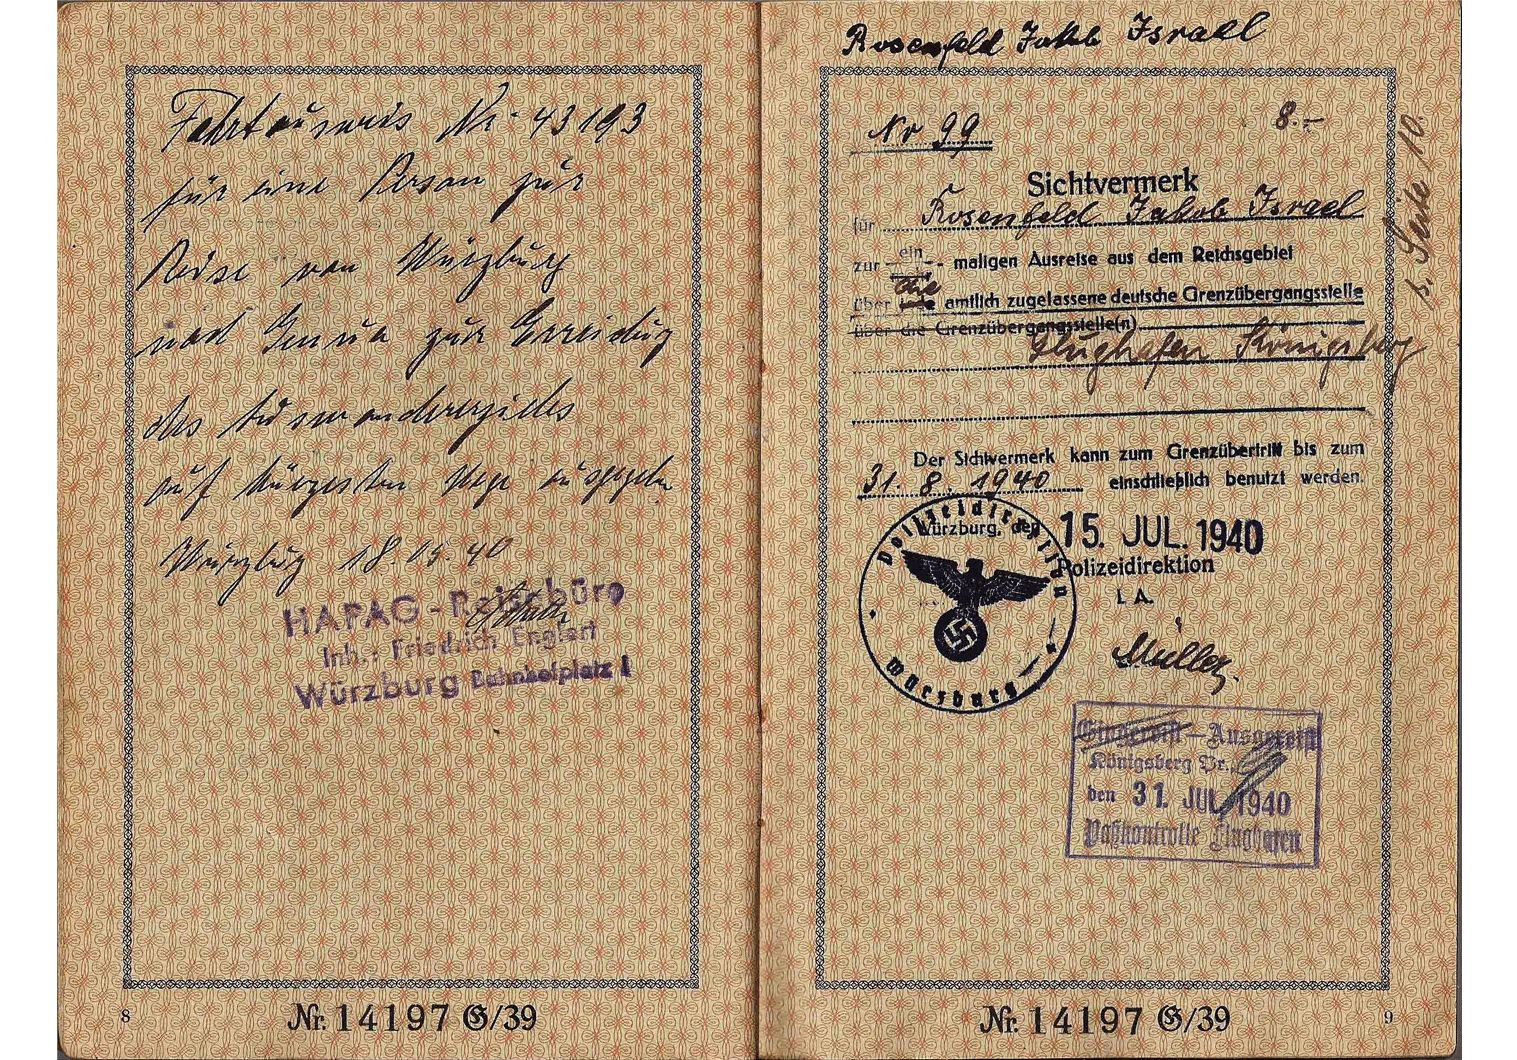 Fahrtausweis Nr. 43193
für eine Person zur
Reise von Würzburg
nach Genua zur Erreichung
des Auswandererzieles
auf kürzesten Wege ausgegeben
Würzburg 18.05.40
HAPAG - Reisebüro
Inh.: Friedrich Englert
Würzburg Bahnhofplatz 1
8
Nr. 14197 G/39
Rosenfeld Jakob Israel
Nr 99
8.-
s. Seite 10.
Sichtvermerk
für Rosenfeld Jakob Israel
zur ein maligen Ausreise aus dem Reichsgebiet
über die amtlich zugelassene deutsche Grenzübergangsstelle
über die Grenzübergangsstelle(n)
Flughafen Königsberg
Der Sichtvermerk kann zum Grenzübertritt bis zum
31. 8. 1940 einschließlich benutzt werden.
Würzburg, den 15. JUL. 1940
Polizeidirektion
I. A.
Müller.
Polizeidirektion
Würzburg
Eingereist - Ausgereist
Königsberg Pr.,
den 31. JUL. 1940
Paßkontrolle Flughafen
Nr. 14197 G/39
9